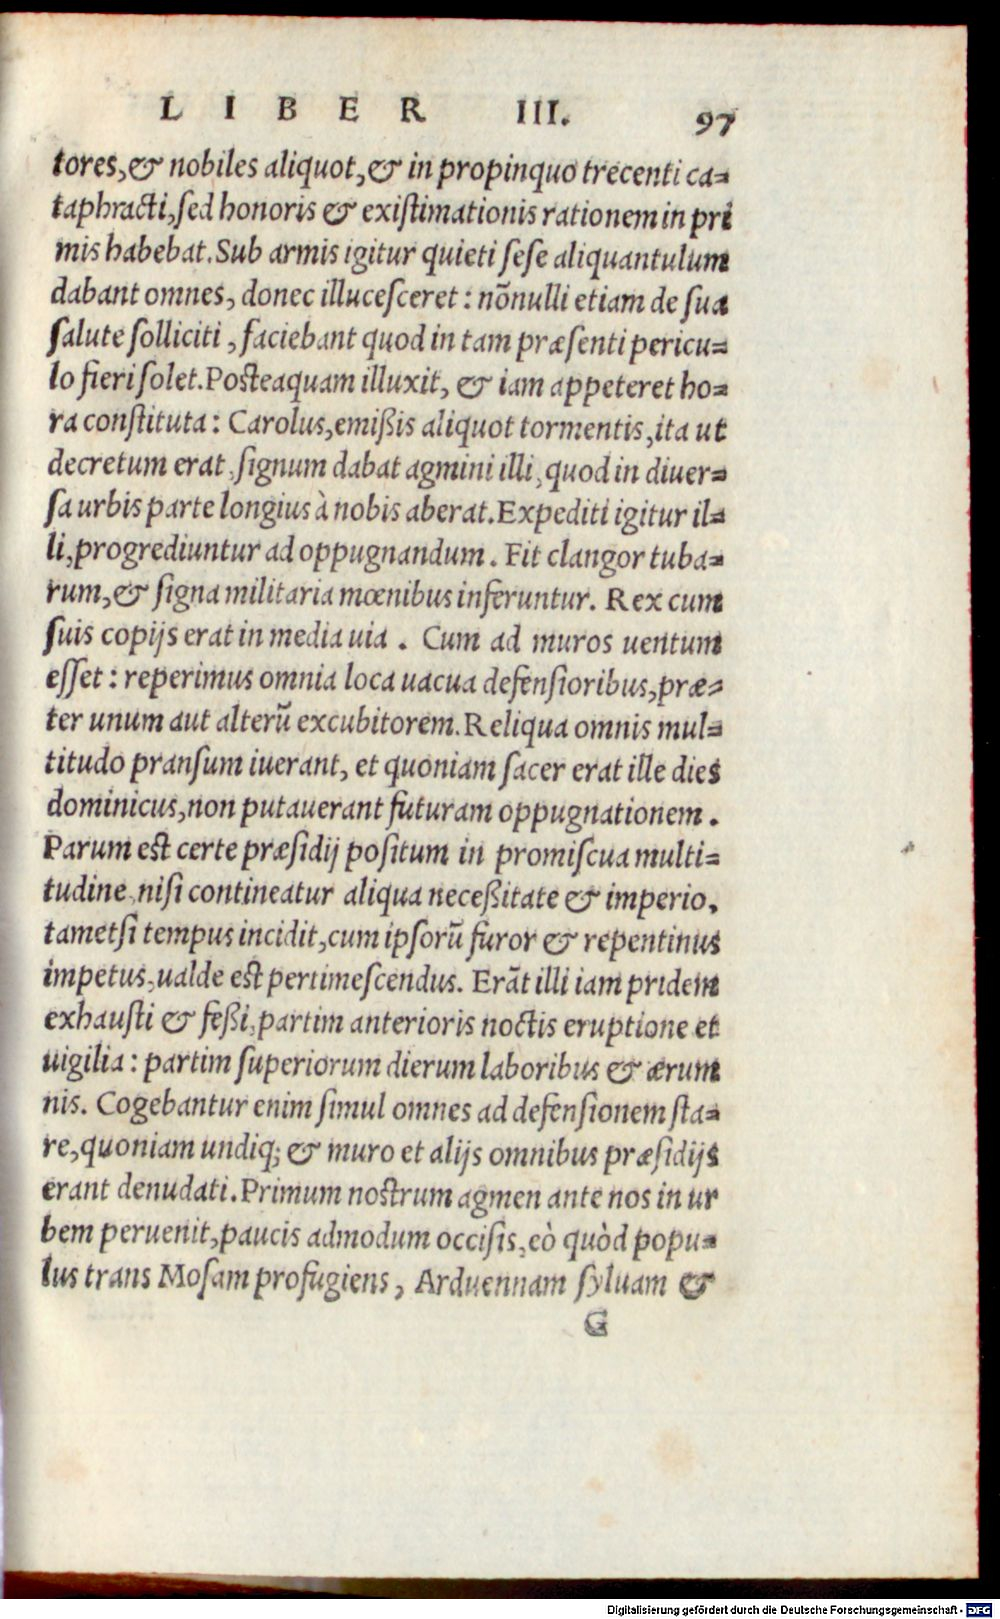 LIBER III. 97
tores,& nobiles aliquot,& in propinquo trecenti ca=
taphracti,ſed honoris & exiſtimationis rationem in pri
mis habebat.Sub armis igitur quieti ſeſe aliquantulum
dabant omnes, donec illuceſceret : nõnulli etiam de ſua
ſalute ſolliciti , faciebant quod in tam præſenti pericu=
lo fieri ſolet.Poſteaquam illuxit, & iam appeteret ho=
ra conſtituta : Carolus,emißis aliquot tormentis,ita ut
decretum erat,ſignum dabat agmini illi,quod in diuer=
ſa urbis parte longius à nobis aberat.Expediti igitur il=
li,progrediuntur ad oppugnandum . Fit clangor tuba=
rum,& ſigna militaria mœnibus inferuntur. Rex cum
ſuis copijs erat in media uia . Cum ad muros uentum
eſſet : reperimus omnia loca uacua defenſioribus,præ=
ter unum aut alterũ excubitorem.Reliqua omnis mul=
titudo pranſum iuerant, et quoniam ſacer erat ille dies
dominicus,non putauerant futuram oppugnationem .
Parum eſt certe præſidij poſitum in promiſcua multi=
tudine,niſi contineatur aliqua neceßitate & imperio,
tametſi tempus incidit,cum ipſorũ furor & repentinus
impetus,ualde eſt pertimeſcendus. Erãt illi iam pridem
exhauſti & feßi,partim anterioris noctis eruptione et
uigilia : partim ſuperiorum dierum laboribus & ærum
nis. Cogebantur enim ſimul omnes ad defenſionem ſta=
re,quoniam undiq; & muro et alijs omnibus præſidijs
erant denudati.Primum noſtrum agmen ante nos in ur
bem peruenit,paucis admodum occiſis,eò quòd popu=
lus trans Moſam profugiens , Arduennam ſyluam &
G
Digitalisierung gefördert durch die Deutsche Forschungsgemeinschaft - DFG